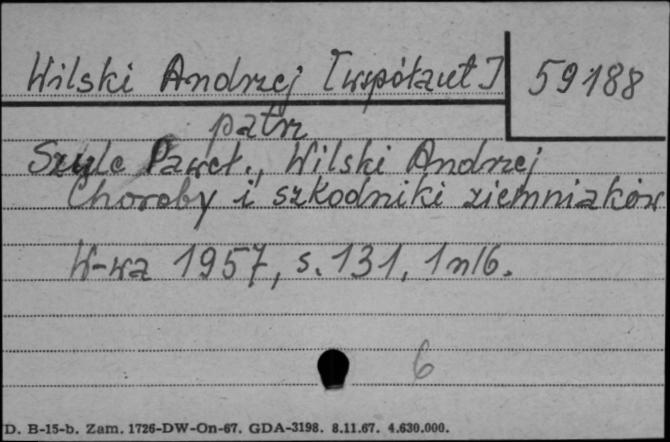 Wilski Andrzej [współaut] 59188
patrz
Szulc Paweł., Wilski Andrzej
Choroby i szkodniki ziemniaków
W-wa 1957, s. 131, 1 nlb.
6
D. B-15-b. Zam. 1726-DW-On-67. GDA-3198. 8.11.67. 4.630.000.